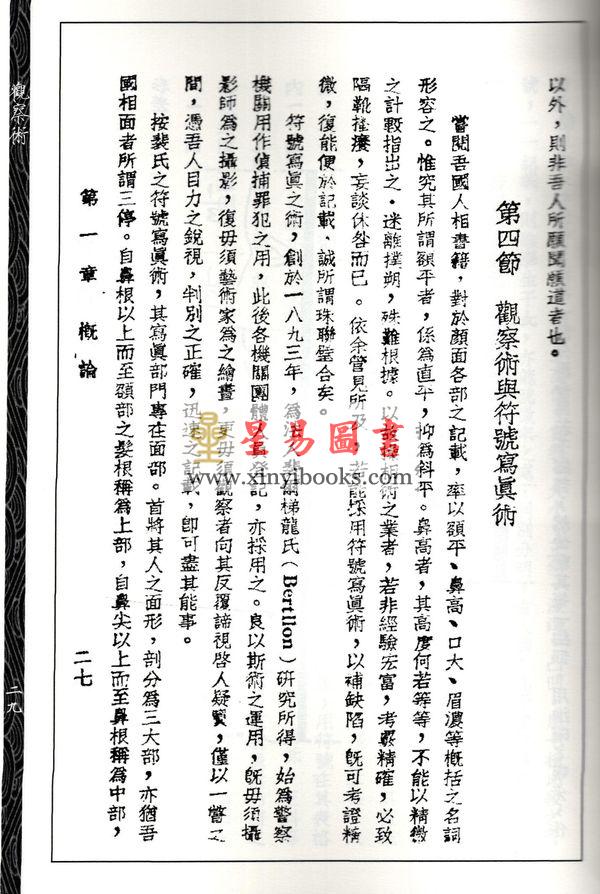 以外，則非吾人所願聞願道者也。
第四節　觀察術與符號寫眞術
嘗閱吾國人相書籍，對於顏面各部之記載，率以額平、鼻高、口大、眉濃等概括之名詞
形容之。惟究其所謂額平者，係爲直平，抑爲斜平。鼻高者，其高度何若等等，不能以精微
之計數指出之。迷離撲朔，殊難根據。以故操相術之業者，若非經驗宏富，考覈精確，必致
隔靴搔癢，妄談休咎而已。依余管見所及，若能採用符號寫眞術，以補缺陷，旣可考證精
微，復能便於記載，誠所謂珠聯璧合矣。
符號寫眞之術，創於一八九三年，爲法人裴爾梯龍氏（Bertllon）研究所得，始爲警察
機關用作偵捕罪犯之用，此後各機關團體人員登記，亦採用之。良以斯術之運用，旣毋須攝
影師爲之攝影，復毋須藝術家爲之繪畫，更毋須觀察者向其反覆諦視啓人疑竇，僅以一瞥之
間，憑吾人目力之銳視，判別之正確，迅速之記載，卽可盡其能事。
按裴氏之符號寫眞術，其寫眞部門專在面部。首將其人之面形，剖分爲三大部，亦猶吾
國相面者所謂三停。自鼻根以上而至額部之髮根稱爲上部，自鼻尖以上而至鼻根稱爲中部，
第一章　概論
二七
觀察術
二九
星易圖書
www.xinyibooks.com